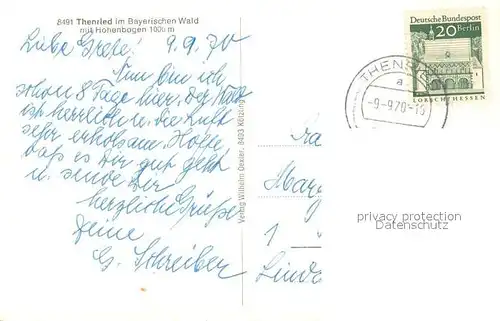 8491 Thenried im Bayerischen Wald
mit Hohenbogen 1000 m
Liebe Grete! 9.9.70
Nun bin ich
schon 8 Tage hier. Der Wald
ist herrlich u. die Luft
sehr erholsam. Hoffe
daß es Dir gut geht
u. sende Dir
herzliche Grüße
Deine
G. Schreiber
Verlag Wilhelm Dexler, 8493 Kötzting
Deutsche Bundespost
20 Berlin
LORSCH/HESSEN
THENR
a
-9-9.70-15
Mar
1
Linda
privacy protection
Datenschutz